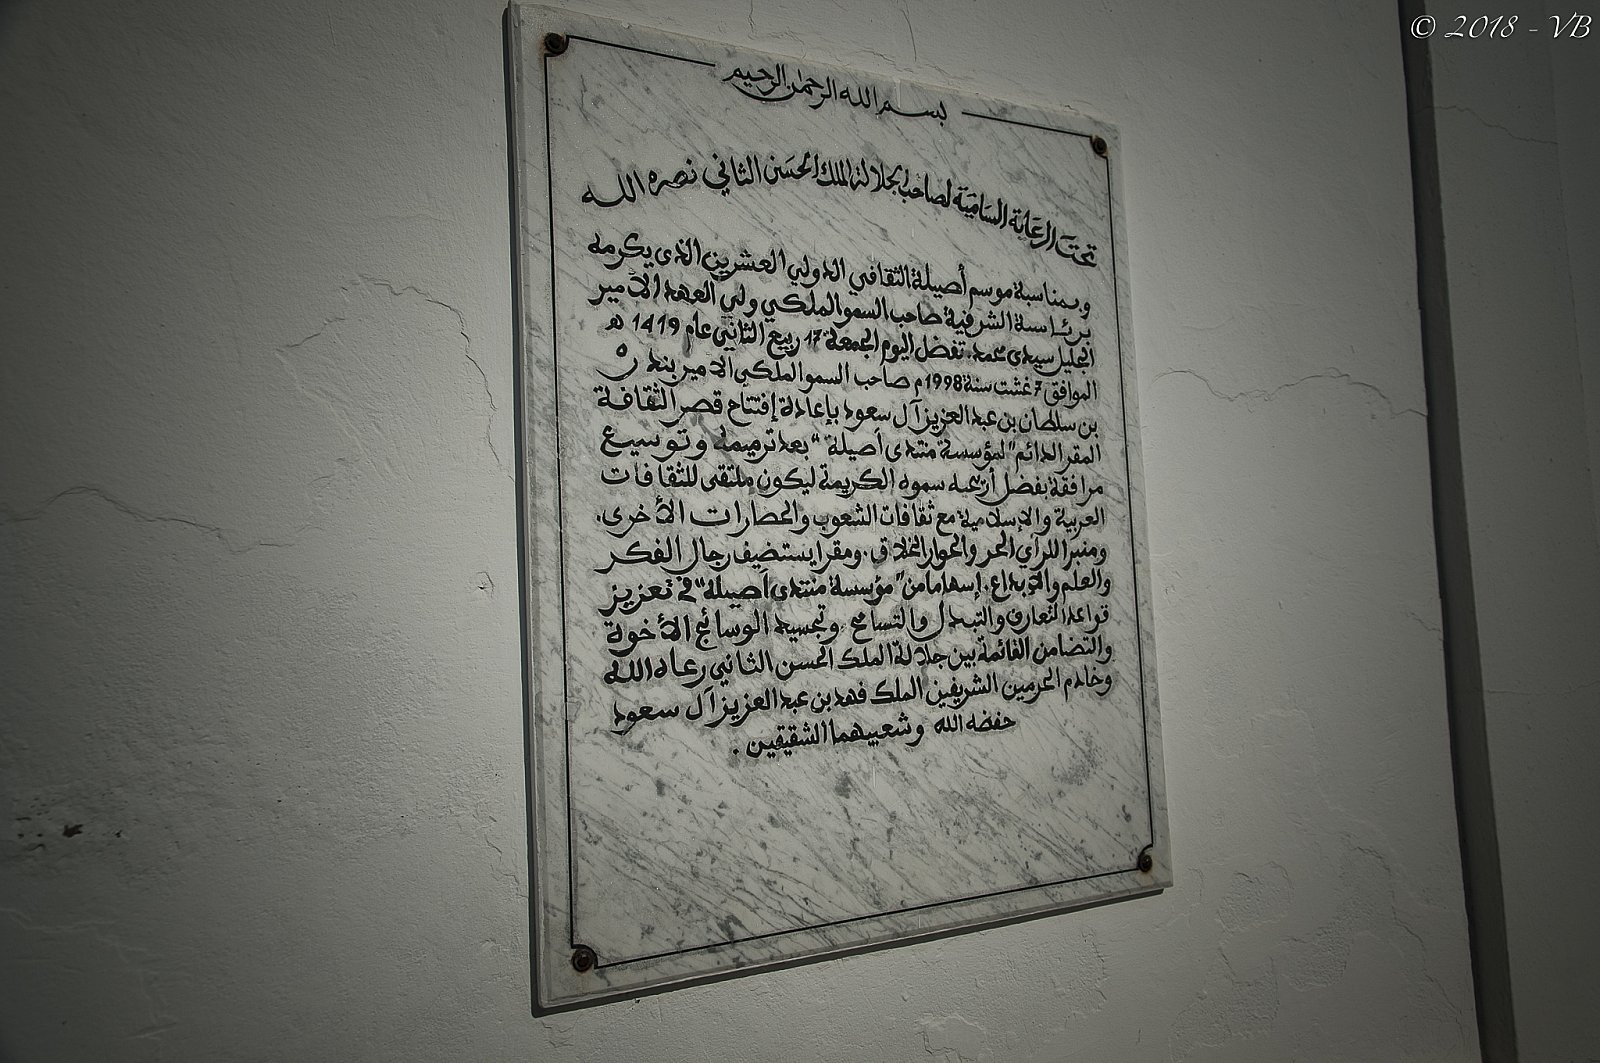 © 2018 - VB
بسم الله الرحمن الرحيم
تحت الرعاية السامية لصاحب الجلالة الملك الحسن الثاني نصره الله
وبمناسبة موسم أصيلة الثقافي الدولي العشرين الذي يكرمه
برئاسة الشرفية صاحب السمو الملكي ولي العهد الامير
الجليل سيدي محمد. تفضل اليوم الجمعة 17 ربيع الثاني عام 1419 هـ
الموافق 7 غشت سنة 1998 م صاحب السمو الملكي الامير بندر
بن سلطان بن عبد العزيز آل سعود بإعادة إفتتاح قصر الثقافة
المقر الدائم "لمؤسسة منتدى أصيلة" بعد ترميمه وتوسيع
مرافقه بفضل أريحية سموه الكريمة ليكون ملتقى للثقافات
العربية والإسلامية مع ثقافات الشعوب والحضارات الأخرى.
ومنبرا للرأي الحر والحوار الخلاق. ومقرا يستضيف رجال الفكر
والعلم والإبداع. إسهاما من "مؤسسة منتدى أصيلة" في تعزيز
قواعد التعارف والتبدل والتسامح. وتجسيد الوسائج الأخوة
والتضامن القائمة بين جلالة الملك الحسن الثاني رعاه الله
وخادم الحرمين الشريفين الملك فهد بن عبد العزيز آل سعود
حفضه الله وشعبيهما الشقيقين.